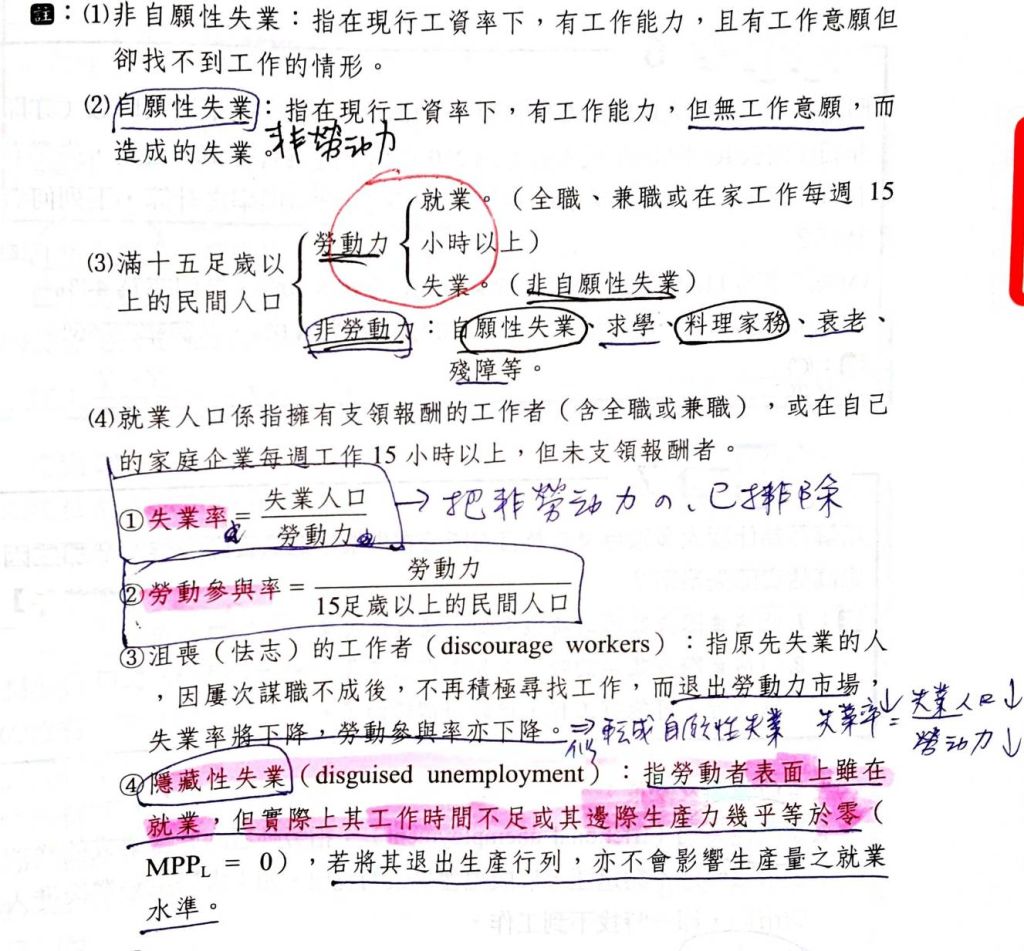 註：(1)非自願性失業：指在現行工資率下，有工作能力，且有工作意願但
卻找不到工作的情形。
(2)自願性失業：指在現行工資率下，有工作能力，但無工作意願，而
造成的失業。非勞动力
(3)滿十五足歲以
上的民間人口
勞動力
就業。（全職、兼職或在家工作每週 15
小時以上）
失業。（非自願性失業）
非勞動力：自願性失業、求學、料理家務、衰老、
殘障等。
(4)就業人口係指擁有支領報酬的工作者（含全職或兼職），或在自己
的家庭企業每週工作 15 小時以上，但未支領報酬者。
①失業率 = 失業人口 / 勞動力 → 把非勞动力の、已排除
②勞動參與率 = 勞動力 / 15足歲以上的民間人口
③沮喪（怯志）的工作者（discourage workers）：指原先失業的人
，因屢次謀職不成後，不再積極尋找工作，而退出勞動力市場，
失業率將下降，勞動參與率亦下降。⇒転成自願性失業 失業率↓ = 失業人口↓ / 勞动力↓
④隱藏性失業（disguised unemployment）：指勞動者表面上雖在
就業，但實際上其工作時間不足或其邊際生產力幾乎等於零（
MPPL = 0），若將其退出生產行列，亦不會影響生產量之就業
水準。